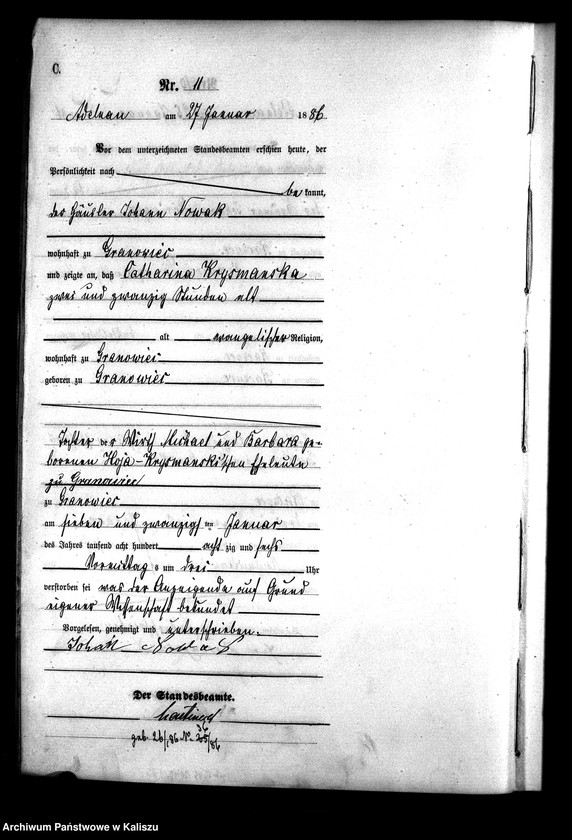 C.
Nr. 11
Adelnau am 27 Januar 1886
Vor dem unterzeichneten Standesbeamten erschien heute, der
Persönlichkeit nach
be kannt,
der Häusler Johann Nowak
wohnhaft zu Granowiec
und zeigte an, daß Catharina Krysmanska
zwei und zwanzig Stunden alt
alt evangelischer Religion,
wohnhaft zu Granowiec
geboren zu Granowiec
Tochter der Wirth Michael und Barbara ge-
borenen Hoja-Krysmanskischen Eheleute
zu Granowiec
zu Granowiec
am sieben und zwanzigsten Januar
des Jahres tausend acht hundert achtzig und sechs
Vormittags um drei Uhr
verstorben sei was der Anzeigende auf Grund
eigener Wissenschaft bekundet
Vorgelesen, genehmigt und unterschrieben.
Johan Nowak
Der Standesbeamte.
geb. 26/1 86 No 26/86
Archiwum Państwowe w Kaliszu